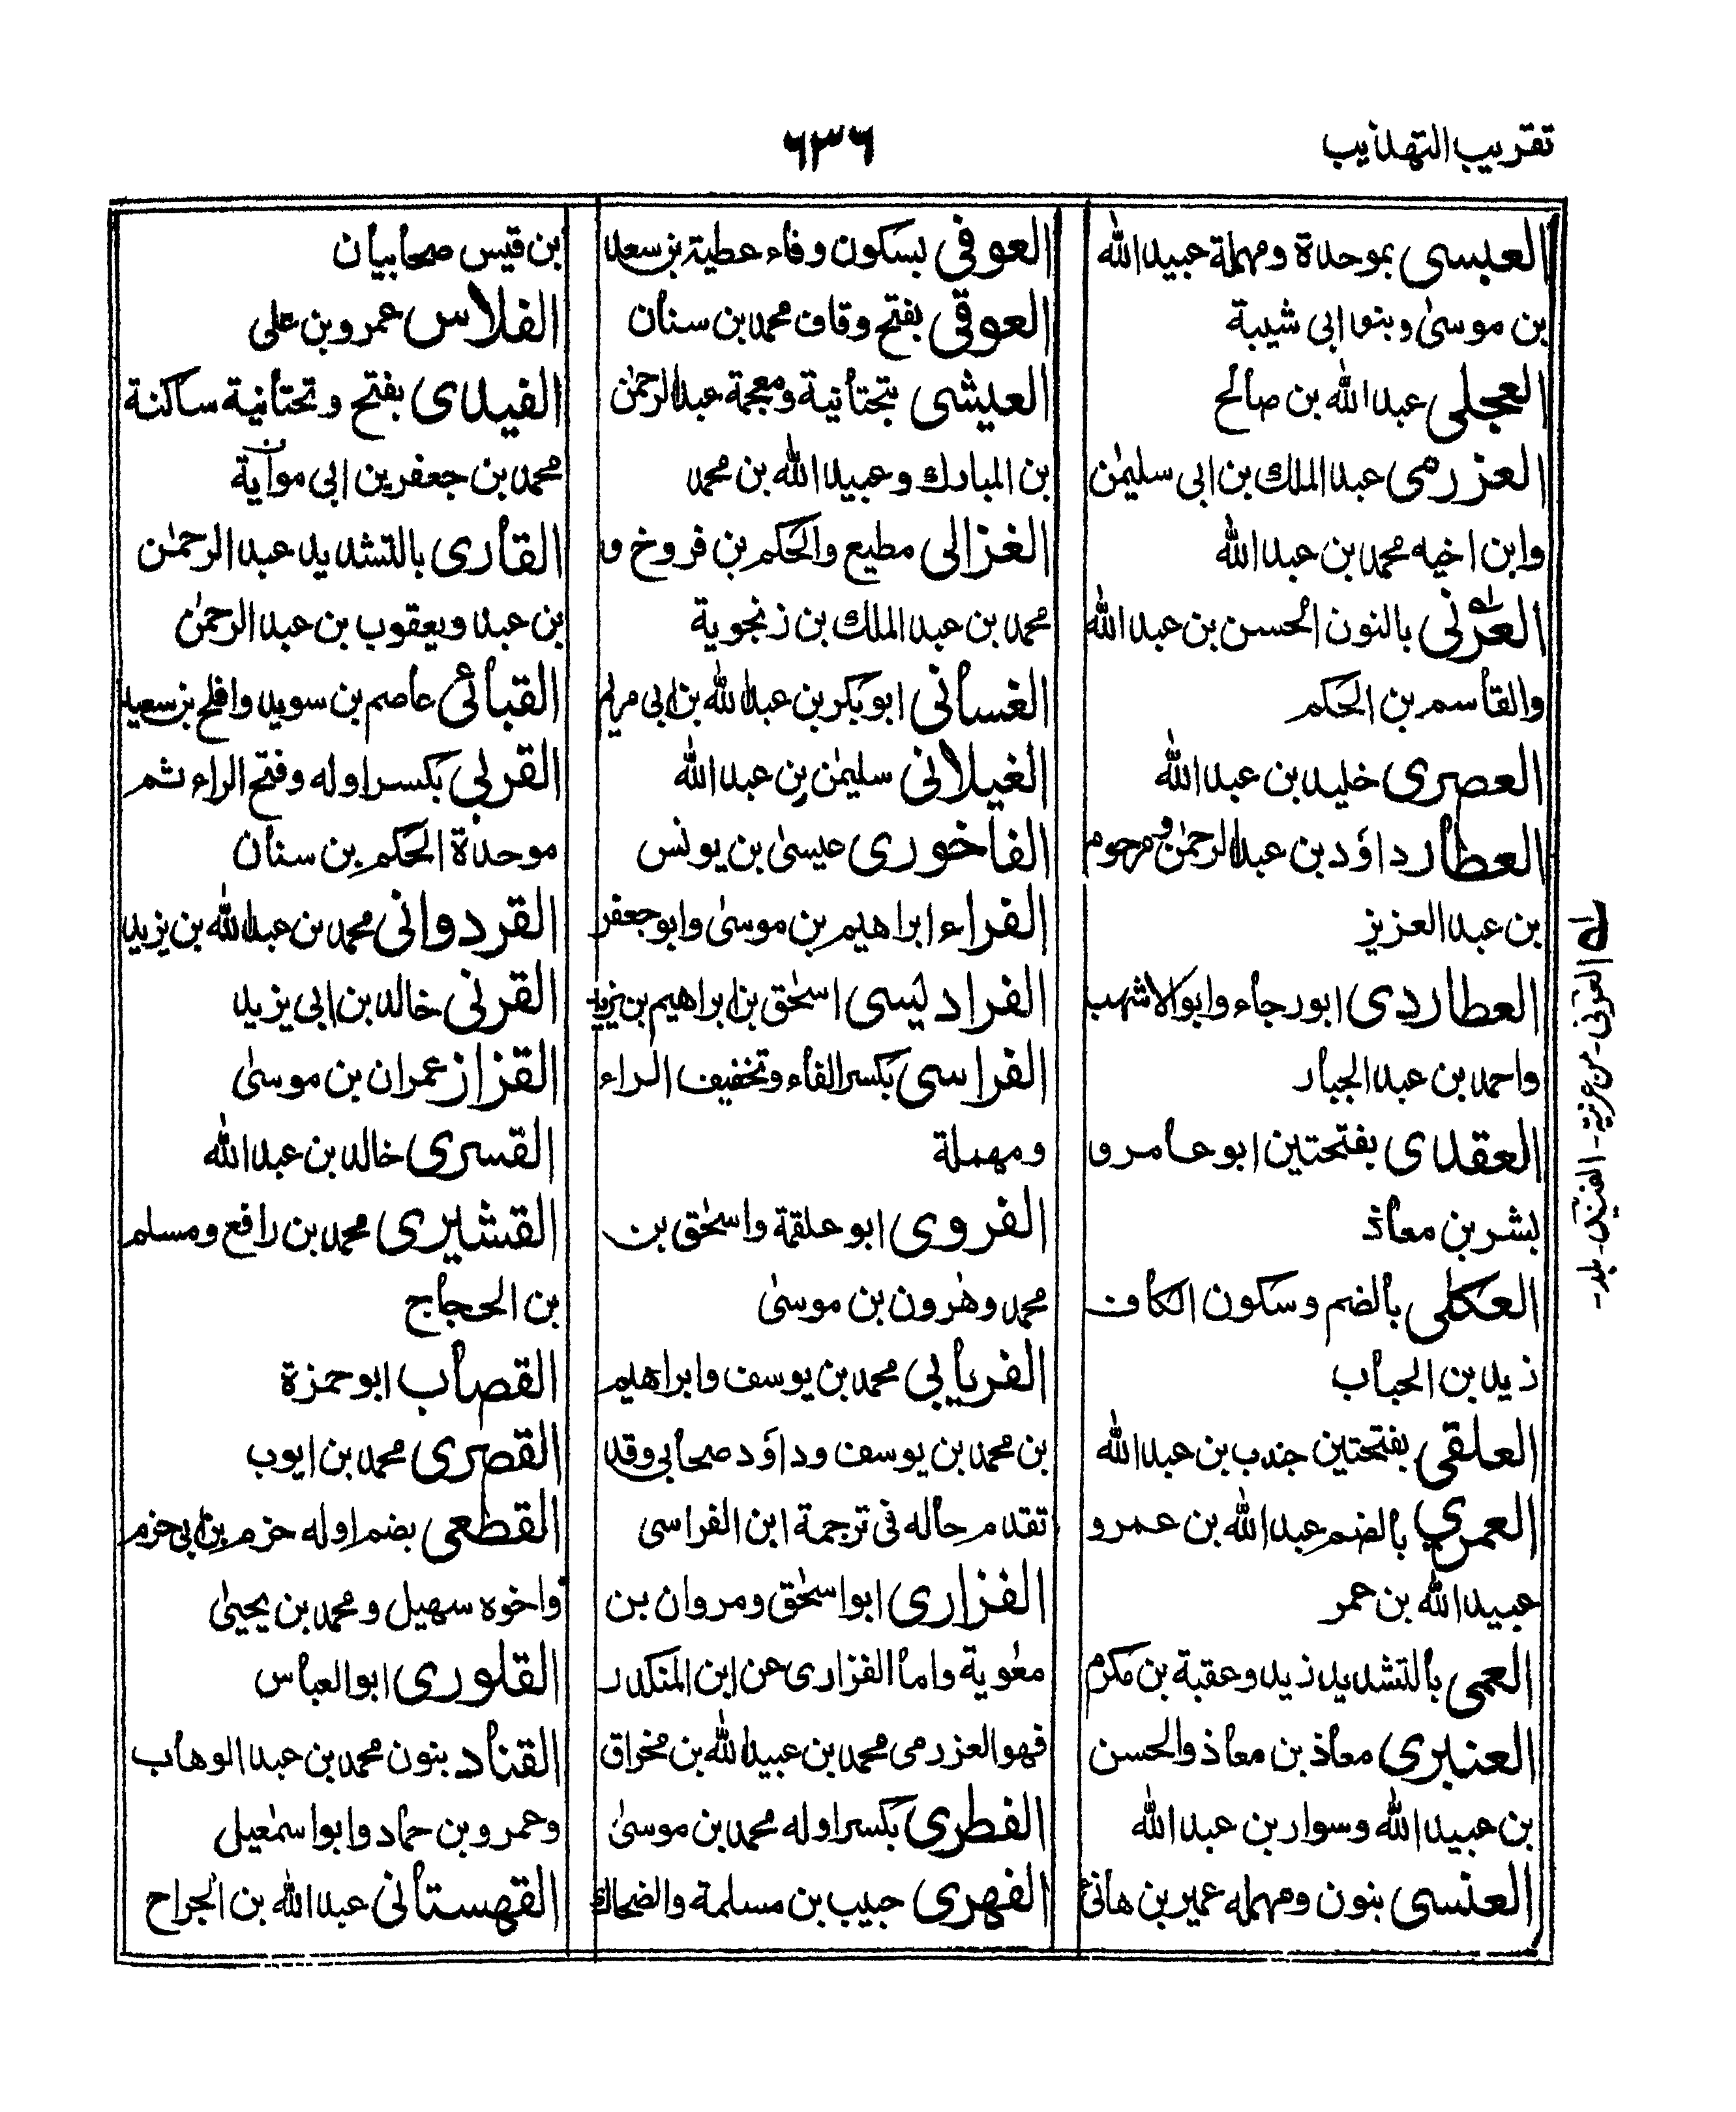 تقريب التهذيب
٦٣٦
العبسى بموحدة ومهملة عبيد الله
بن موسىٰ وبنو ابى شيبة
العجلى عبد الله بن صالح
العزرمى عبد الملك بن ابى سليمٰن
وابن اخيه محمد بن عبد الله
العرنى بالنون الحسن بن عبد الله
والقاسم بن الحكم
العصرى خليد بن عبد الله
العطار داؤد بن عبد الرحمٰن ومرحوم
بن عبد العزيز
العطاردى ابو رجاء وابو الاشهب
واحمد بن عبد الجبار
العقدى بفتحتين ابو عامر و
بشر بن معاذ
العكلى بالضم وسكون الكاف
زيد بن الحباب
العلقى بفتحتين جندب بن عبد الله
العمرى بالضم عبد الله بن عمرو
عبيد الله بن عمر
العمى بالتشديد زيد وعقبة بن مكرم
العنبرى معاذ بن معاذ والحسن
بن عبيد الله وسوار بن عبد الله
العنسى بنون ومهمله عمير بن هانئ
العوفى بسكون وفاء عطية بن سعد
العوقى بفتح وقاف محمد بن سنان
العيشى بتحتانية ومعجمة عبد الرحمٰن
بن المبارك وعبيد الله بن محمد
الغزالى مطيع والحكم بن فروخ و
محمد بن عبد الملك بن زنجوية
الغسانى ابو بكر بن عبد الله بن ابى مريم
الغيلانى سليمٰن بن عبد الله
الفاخورى عيسىٰ بن يونس
الفراء ابراهيم بن موسىٰ وابو جعفر
الفراديسى اسحٰق بن ابراهيم بن يزيد
الفراسى بكسر الفاء وتخفيف الراء
ومهملة
الفروى ابو علقمة واسحٰق بن
محمد وهٰرون بن موسىٰ
الفريابى محمد بن يوسف وابراهيم
بن محمد بن يوسف وداؤد صحابى وقد
تقدم حاله فى ترجمة ابن الفراسى
الفزارى ابو اسحٰق ومروان بن
معٰوية واما الفزارى عن ابن المنكدر
فهو العزرمى محمد بن عبيد الله بن مخراق
الفطرى بكسر اوله محمد بن موسىٰ
الفهرى حبيب بن مسلمة والضحاك
بن قيس صحابيان
الفلاس عمرو بن على
الفيدى بفتح وتحتانية ساكنة
محمد بن جعفر بن ابى مواتية
القارى بالتشديد عبد الرحمٰن
بن عبد ويعقوب بن عبد الرحمٰن
القبائى عاصم بن سويد وافلح بن سعيد
القربى بكسر اوله وفتح الراء ثم
موحدة الحكم بن سنان
القردوانى محمد بن عبد الله بن يزيد
القرنى خالد بن ابى يزيد
القزاز عمران بن موسىٰ
القسرى خالد بن عبد الله
القشيرى محمد بن رافع ومسلم
بن الحجاج
القصاب ابو حمزة
القصرى محمد بن ايوب
القطعى بضم اوله حزم بن ابى حزم
واخوه سهيل ومحمد بن يحيىٰ
القلورى ابو العباس
القناد بنون محمد بن عبد الوهاب
وعمرو بن حماد وابو اسمٰعيل
القهستانى عبد الله بن الجراح
له العرنى - من عرينة - الفيد - بلد -